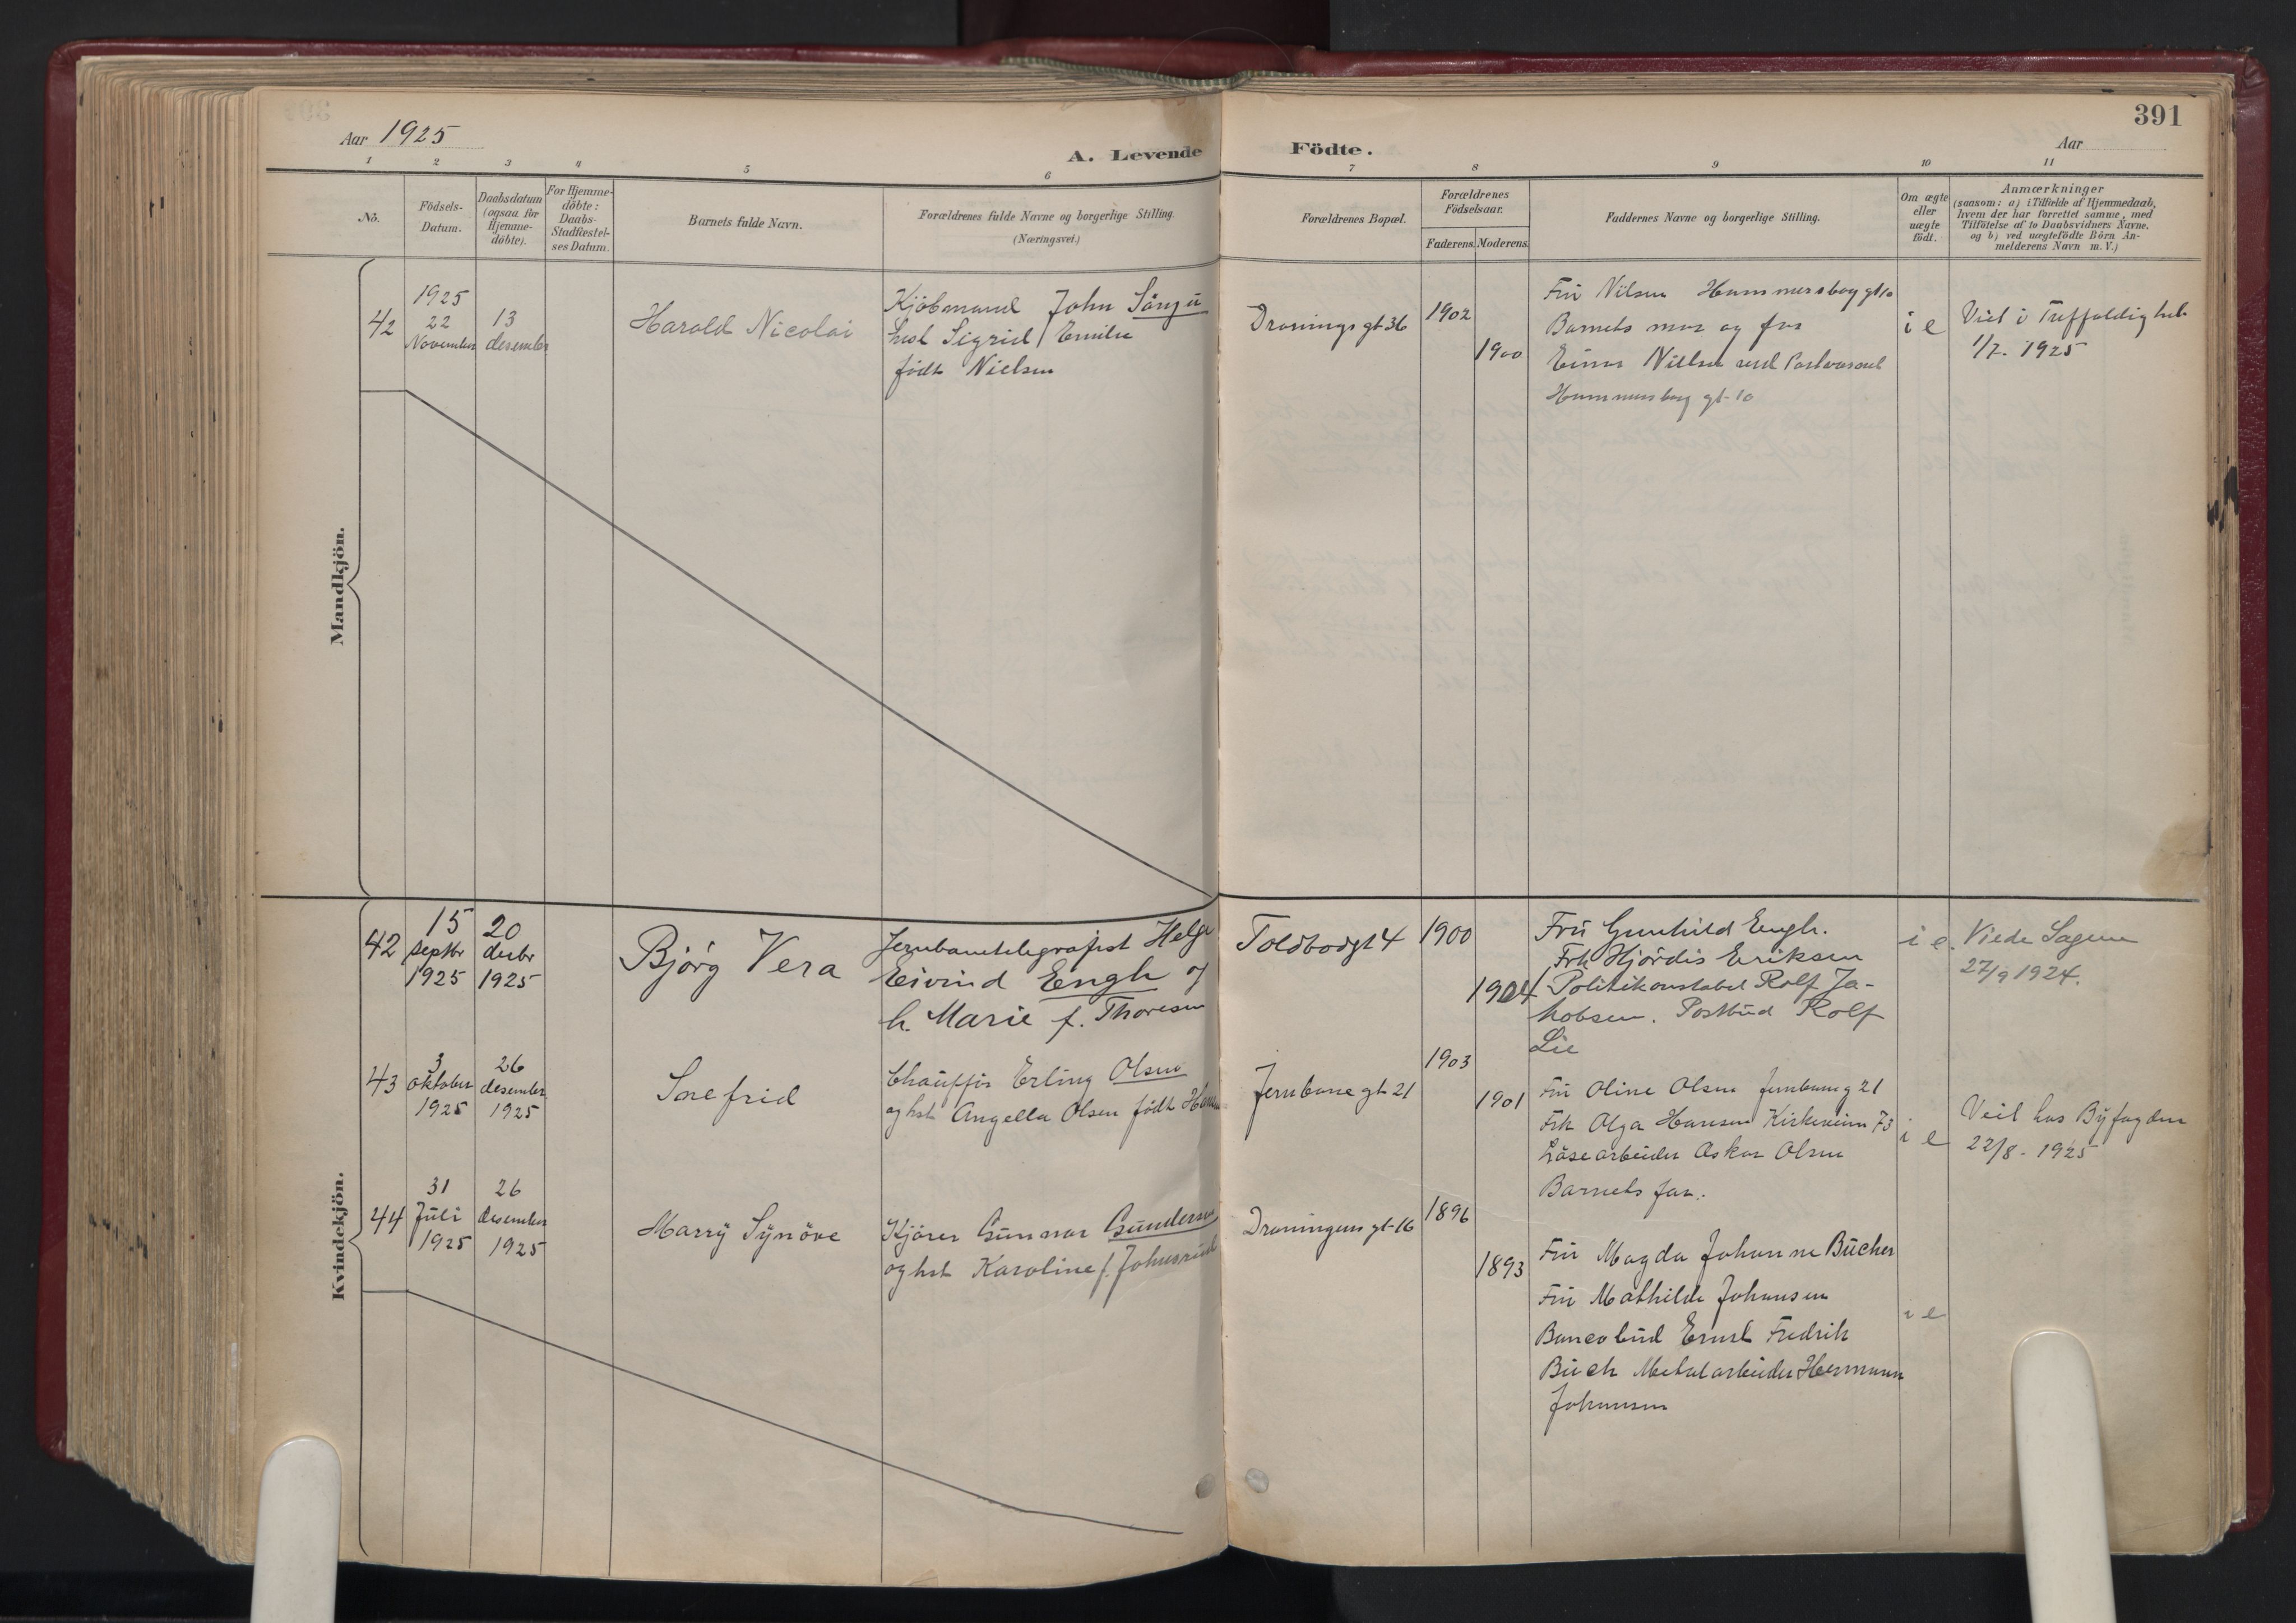 Aar 1925
A. Levende Födte.
Aar
391
1 2 3 4 5 6 7 8 9 10 11
No.
Födsels-
Datum.
Daabsdatum
(ogsaa for
Hjemme-
döbte).
For Hjemme-
döbte:
Daabs-
Stadfæstel-
ses Datum.
Barnets fulde Navn.
Forældrenes fulde Navne og borgerlige Stilling.
(Næringsvei.)
Forældrenes Bopæl.
Forældrenes
Födselsaar.
Faderens. Moderens.
Faddernes Navne og borgerlige Stilling.
Om ægte
eller
uægte
födt.
Anmærkninger
(saasom: a) i Tilfælde af Hjemmedaab,
hvem der har forrettet samme, med
Tilföielse af to Daabsvidners Navne,
og b) ved uægtefödte Börn An-
melderens Navn m. V.)
Mandkjön.
42
1925
22
November
13
desember
Harald Nicolai
Kjöbmand John
hust Sigrid Emilie
födt Nielsen
Dronnings gt 36
1902
1900
Fru Nilsen Hammersborg gt 10
Barnets mor og far
Einar Nielsen
Hammersborg gt 10
i e
Viet i Treffoldighet
1/7. 1925
Kvindekjön.
42
15
septbr
1925
20
desbr
1925
Bjørg Vera
Jernbanetelegrafist Helge
Eivind Engh og
h. Marie f. Thoresen
Toldbodgt 4
1900
1904
Fru Gunhild Engh.
Frk Hjördis Eriksen
Politikonstabel Rolf Ja-
kobsen. Postbud Rolf
Lie
i e.
Viede Sagene
27/9 1924.
43
3
oktober
1925
26
desember
1925
Snefrid
Chauffør Erling Olsen
og hst Angella Olsen født Hansen
Jernbane gt 21
1903
1901
Fru Oline Olsen Jernbaneg 21
Frk Olga Hansen Kirkeveien 73
Låsearbeider Oskar Olsen
Barnets far.
i e
Veit hos Byfogden
22/8 - 1925
44
31
Juli
1925
26
desember
1925
Marry Synöve
Kjører Gunnar Gundersen
og hst Karoline f. Johnsrud
Dronningens gt 16
1896
1893
Fru Magda Johanne Bücher
Fru Mathilde Johansen
Bancobud Ernst Fredrik
Büch Metalarbeider Hermann
Johansen
i e